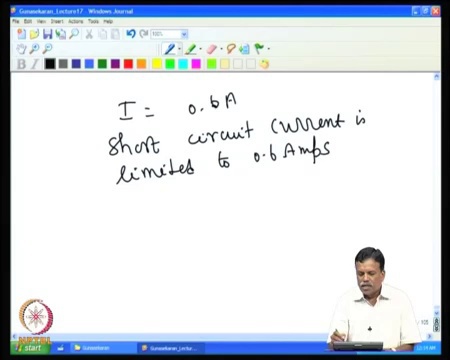 Gunasekaran_Lecture17 - Windows Journal
File Edit View Insert Actions Tools Help
100%
B I
I = 0.6A
Short circuit current is
limited to 0.6 Amps
NPTEL
start Gunasekaran Gunasekaran_Lectu...